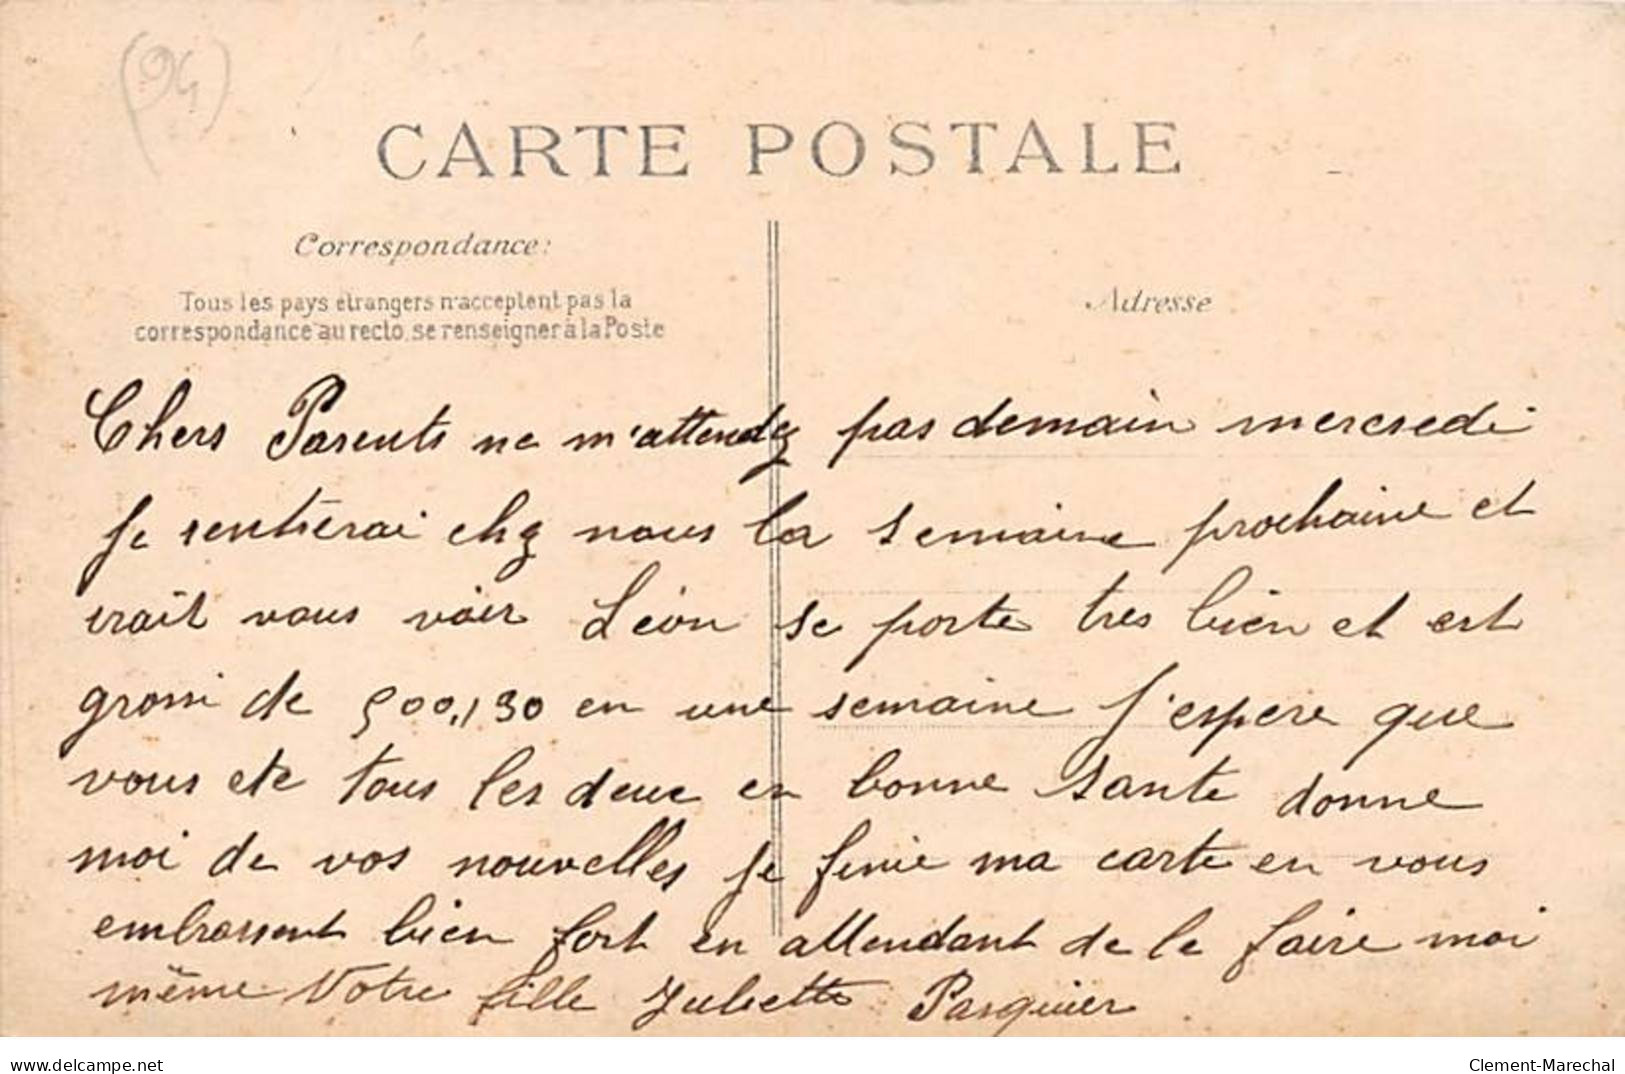 (94)
CARTE POSTALE
Correspondance:
Tous les pays étrangers n'acceptent pas la
correspondance au recto, se renseigner à la Poste
Adresse
Chers Parents ne m'attendez pas demain mercredi
Je rentrerai chez nous la semaine prochaine et
irait vous voir Léon se porte tres bien et est
grossi de 500,130 en une semaine J'espere que
vous ete tous les deux en bonne sante donne
moi de vos nouvelles je finie ma carte en vous
embrassent bien fort en attendant de le faire moi
même Votre fille Juliette Pasquier
delcampe.net
Clement-Marechal